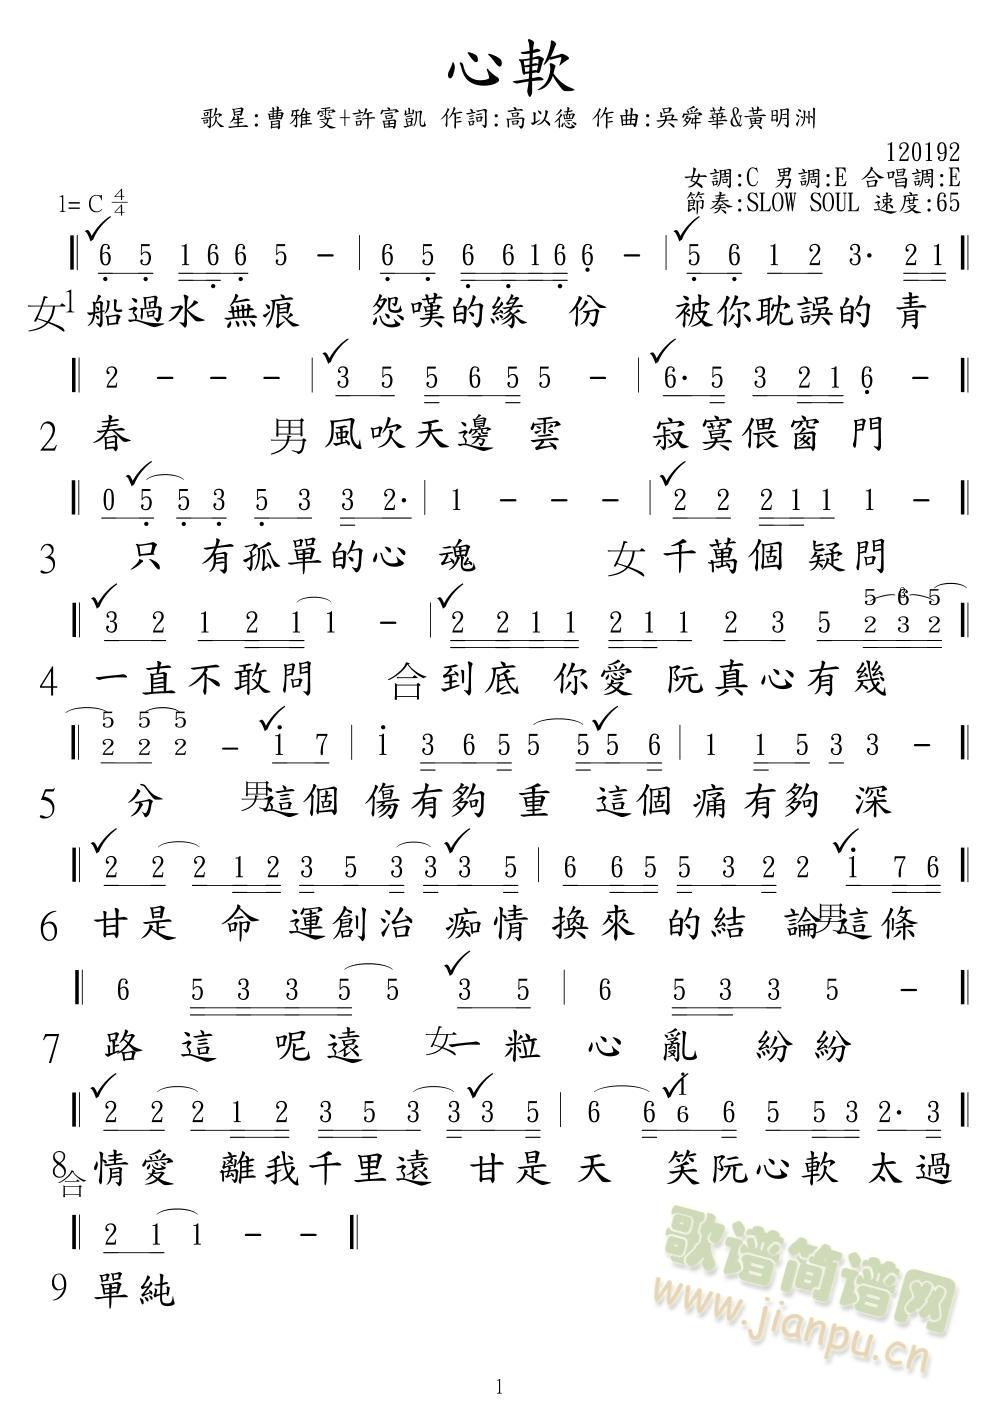 心軟
歌星:曹雅雯+許富凱 作詞:高以德 作曲:吳舜華&黃明洲
120192
女調:C 男調:E 合唱調:E
1= C 4/4
節奏:SLOW SOUL 速度:65
6 5 1 6 6 5 - | 6 5 6 6 1 6 6 - | 5 6 1 2 3· 2 1
女1 船過水 無痕 怨嘆的緣 份 被你耽誤的 青
2 - - - | 3 5 5 6 5 5 - | 6· 5 3 2 1 6 -
2 春 男 風吹天邊 雲 寂寞偎窗 門
0 5 5 3 5 3 3 2· | 1 - - - | 2 2 2 1 1 1 -
3 只 有孤單的心 魂 女 千萬個 疑問
5 6 5
3 2 1 2 1 1 - | 2 2 1 1 2 1 1 2 3 5 2 3 2
4 一直不敢問 合 到底 你愛 阮真心有幾
5 5 5
2 2 2 - 1 7 | 1 3 6 5 5 5 5 6 | 1 1 5 3 3 -
5 分 男這個 傷有夠 重 這個 痛有夠 深
2 2 2 1 2 3 5 3 3 3 5 | 6 6 5 5 3 2 2 1 7 6
6 甘是 命 運創治 痴情 換來 的結 論 男 這條
6 5 3 3 5 5 3 5 | 6 5 3 3 5 -
7 路 這 呢遠 女一粒 心 亂 紛紛
1
2 2 2 1 2 3 5 3 3 3 5 | 6 6 6 6 5 5 3 2· 3
8合 情愛 離我千里遠 甘是 天 笑阮心軟 太過
2 1 1 - -
9 單純
歌谱简谱网
www.jianpu.cn
1